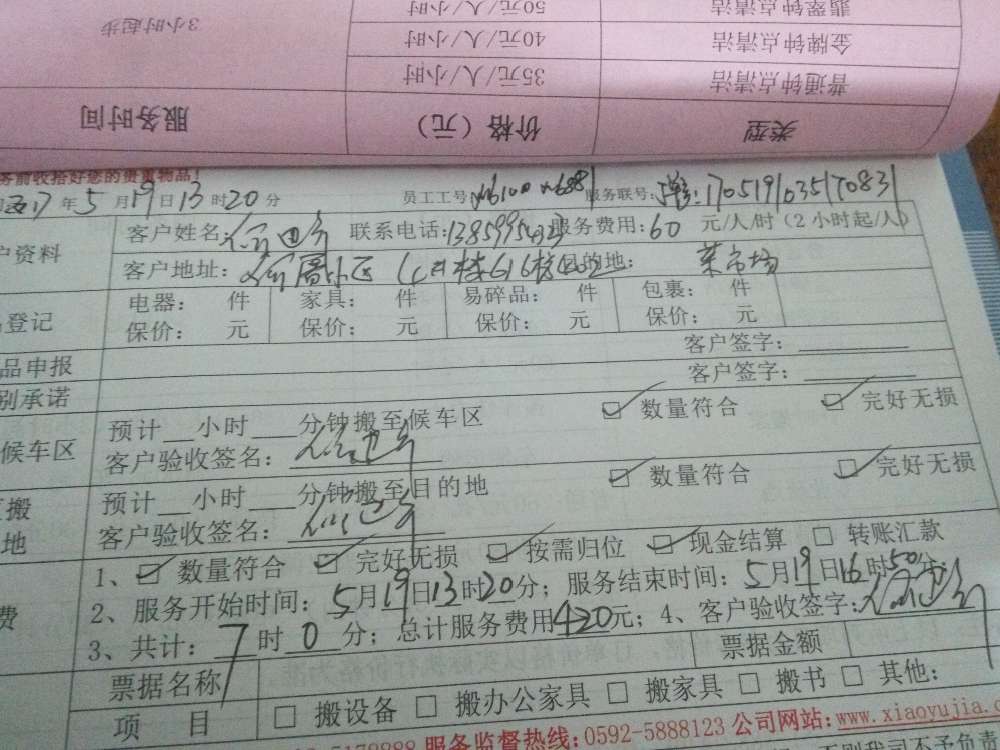 翡翠钟点清洁 50元/人/小时
金牌钟点清洁 40元/人/小时 3小时起步
普通钟点清洁 35元/人/小时
类型 价格（元） 服务时间
务前收拾好您的贵重物品！
年5月19日13时20分 员工工号 服务联号:
户资料 客户姓名: 联系电话: 服务费用:60 元/人/时（2小时起/人）
客户地址: 小区 目的地: 菜市场
登记 电器: 件 家具: 件 易碎品: 件 包裹: 件
保价: 元 保价: 元 保价: 元 保价: 元
品申报 客户签字:
别承诺 客户签字:
候车区 预计__小时___分钟搬至候车区 ☑ 数量符合 ☑ 完好无损
客户验收签名:
搬 预计__小时___分钟搬至目的地 ☑ 数量符合 ☑ 完好无损
地 客户验收签名:
1、☑ 数量符合 ☑ 完好无损 ☑ 按需归位 ☑ 现金结算 □ 转账汇款
费 2、服务开始时间: 5月19日13时20分; 服务结束时间: 5月19日16时50分
3、共计: 7时0分; 总计服务费用420元; 4、客户验收签字:
票据名称 票据金额
项 目 □ 搬设备 □ 搬办公家具 □ 搬家具 □ 搬书 □ 其他:
服务监督热线:0592-5888123 公司网站:www.xiaoyujia.c